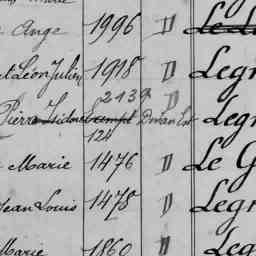 Ange 1996 D
et Léon Julien 1918 D Legr
2139 D
Pierre Isidore Legr
124
Marie 1476 D Le G
Jean Louis 1475 D Legr
Marie 1860 D Leg